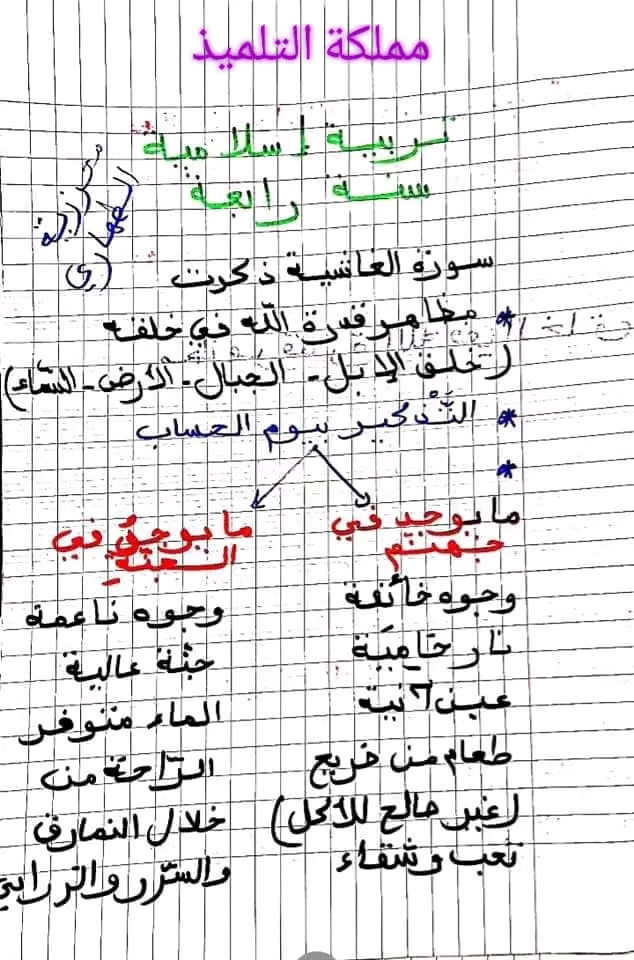 مملكة التلميذ
تربية إسلامية
سنة رابعة
سورة الغاشية ذكرت
* مظاهر قدرة الله في خلقه
(خلق الإبل - الجبال - الأرض - السماء)
* التذكير بيوم الحساب
*
ما يوجد في
جهنم
وجوه خائفة
نار حامية
عين آنية
طعام من ضريع
(غير صالح للأكل)
تعب وشقاء
ما يوجد في
الجنة
وجوه ناعمة
جنة عالية
الماء متوفر
الراحة من
خلال النمارق
والسرر والزرابي